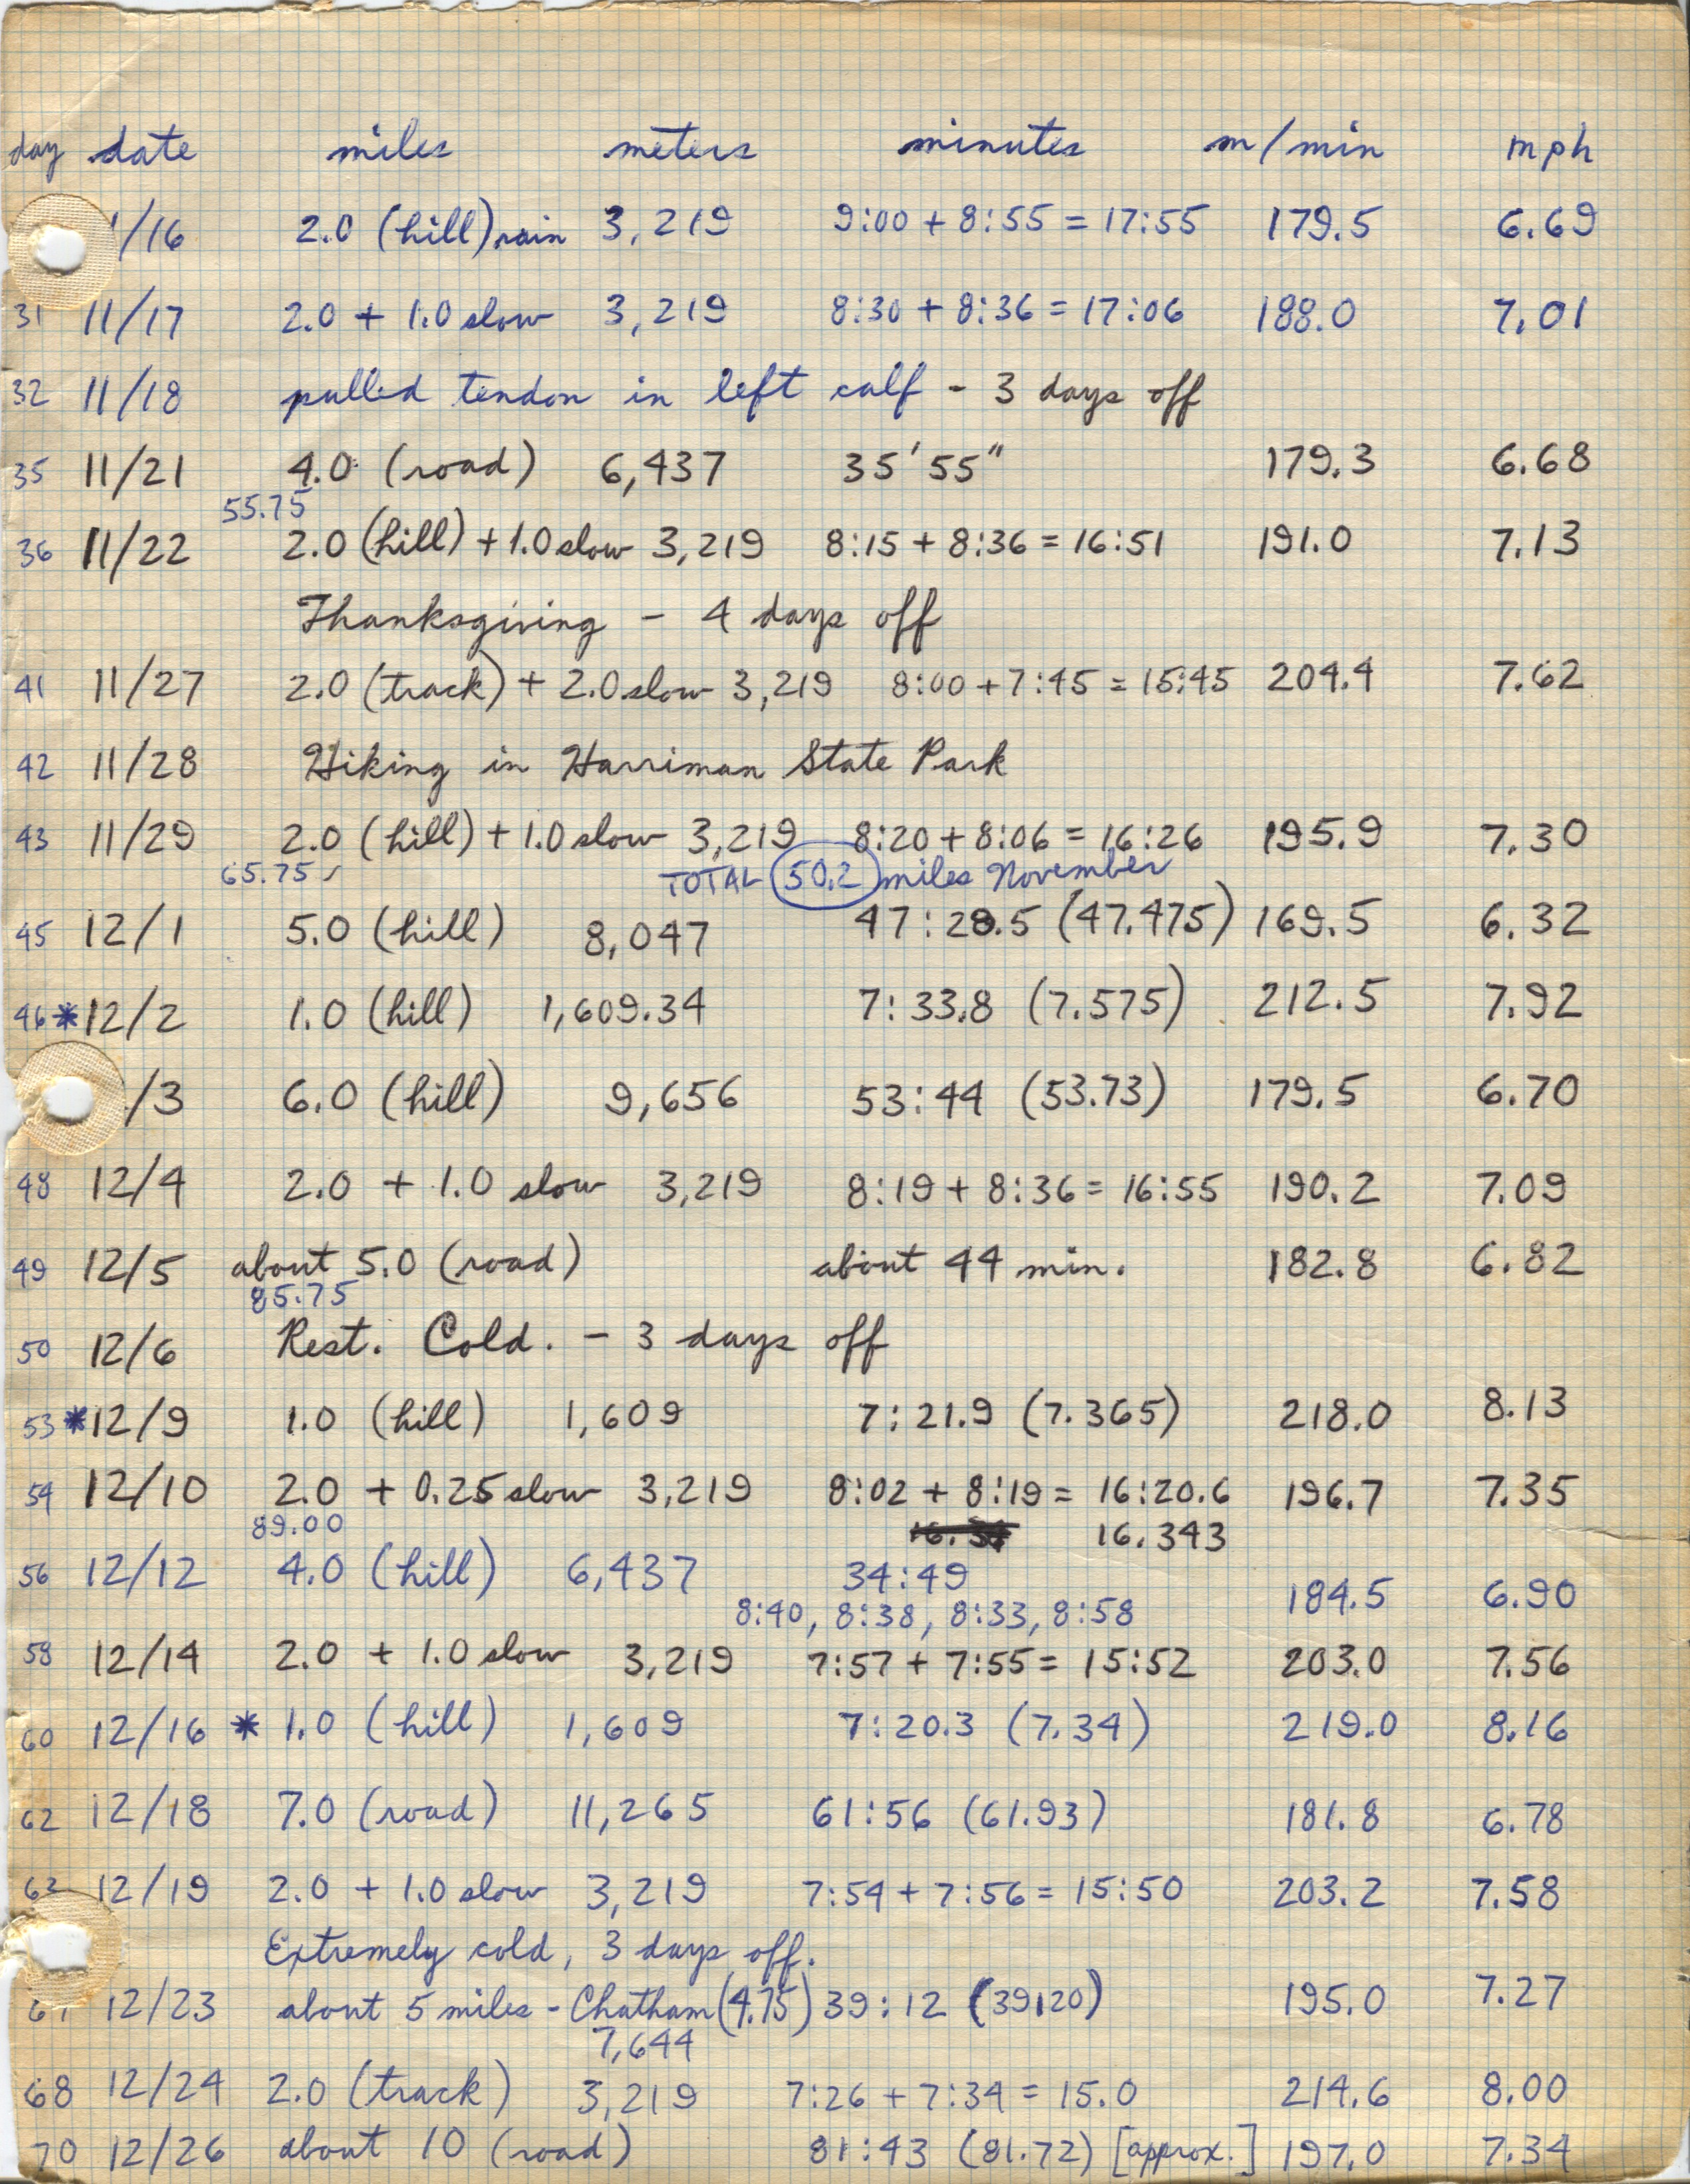 day date miles meters minutes m/min mph
/16 2.0 (hill) rain 3,219 9:00 + 8:55 = 17:55 179.5 6.69
31 11/17 2.0 + 1.0 slow 3,219 8:30 + 8:36 = 17:06 188.0 7.01
32 11/18 pulled tendon in left calf - 3 days off
35 11/21 4.0 (road) 6,437 35'55" 179.3 6.68
55.75
36 11/22 2.0 (hill) + 1.0 slow 3,219 8:15 + 8:36 = 16:51 191.0 7.13
Thanksgiving - 4 days off
41 11/27 2.0 (track) + 2.0 slow 3,219 8:00 + 7:45 = 15:45 204.4 7.62
42 11/28 Hiking in Harriman State Park
43 11/29 2.0 (hill) + 1.0 slow 3,219 8:20 + 8:06 = 16:26 195.9 7.30
65.75 TOTAL 50.2 miles November
45 12/1 5.0 (hill) 8,047 47:28.5 (47.475) 169.5 6.32
46 *12/2 1.0 (hill) 1,609.34 7:33.8 (7.575) 212.5 7.92
/3 6.0 (hill) 9,656 53:44 (53.73) 179.5 6.70
48 12/4 2.0 + 1.0 slow 3,219 8:19 + 8:36 = 16:55 190.2 7.09
49 12/5 about 5.0 (road) about 44 min. 182.8 6.82
85.75
50 12/6 Rest. Cold. - 3 days off
53 *12/9 1.0 (hill) 1,609 7:21.9 (7.365) 218.0 8.13
54 12/10 2.0 + 0.25 slow 3,219 8:02 + 8:19 = 16:20.6 196.7 7.35
89.00 16.343
56 12/12 4.0 (hill) 6,437 34:49 184.5 6.90
8:40, 8:38, 8:33, 8:58
58 12/14 2.0 + 1.0 slow 3,219 7:57 + 7:55 = 15:52 203.0 7.56
60 12/16 * 1.0 (hill) 1,609 7:20.3 (7.34) 219.0 8.16
62 12/18 7.0 (road) 11,265 61:56 (61.93) 181.8 6.78
63 12/19 2.0 + 1.0 slow 3,219 7:54 + 7:56 = 15:50 203.2 7.58
Extremely cold, 3 days off.
12/23 about 5 miles - Chatham (4.75) 39:12 (39120) 195.0 7.27
7,644
68 12/24 2.0 (track) 3,219 7:26 + 7:34 = 15.0 214.6 8.00
70 12/26 about 10 (road) 81:43 (81.72) [approx.] 197.0 7.34